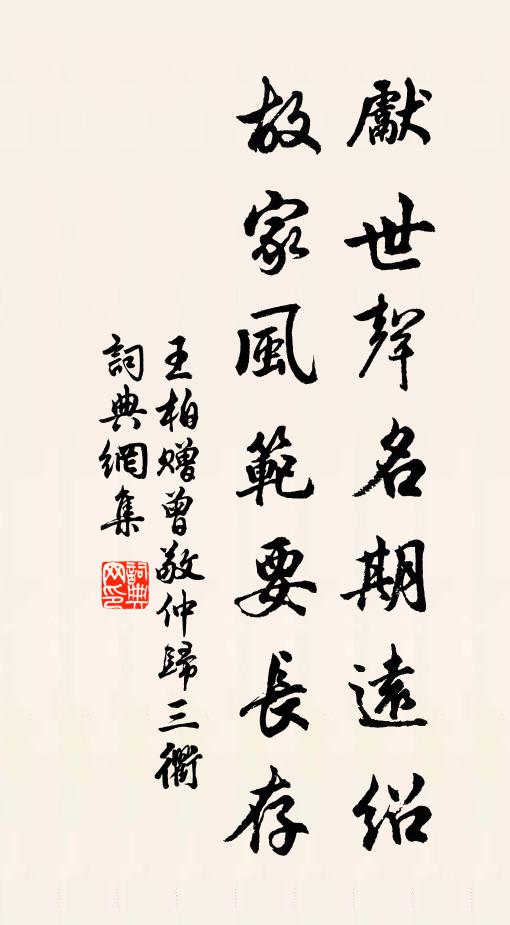 獻世聲名期遠紹
故家風範要長存
王柏贈曾敬仲歸三衢
詞典網集
詞典
网印